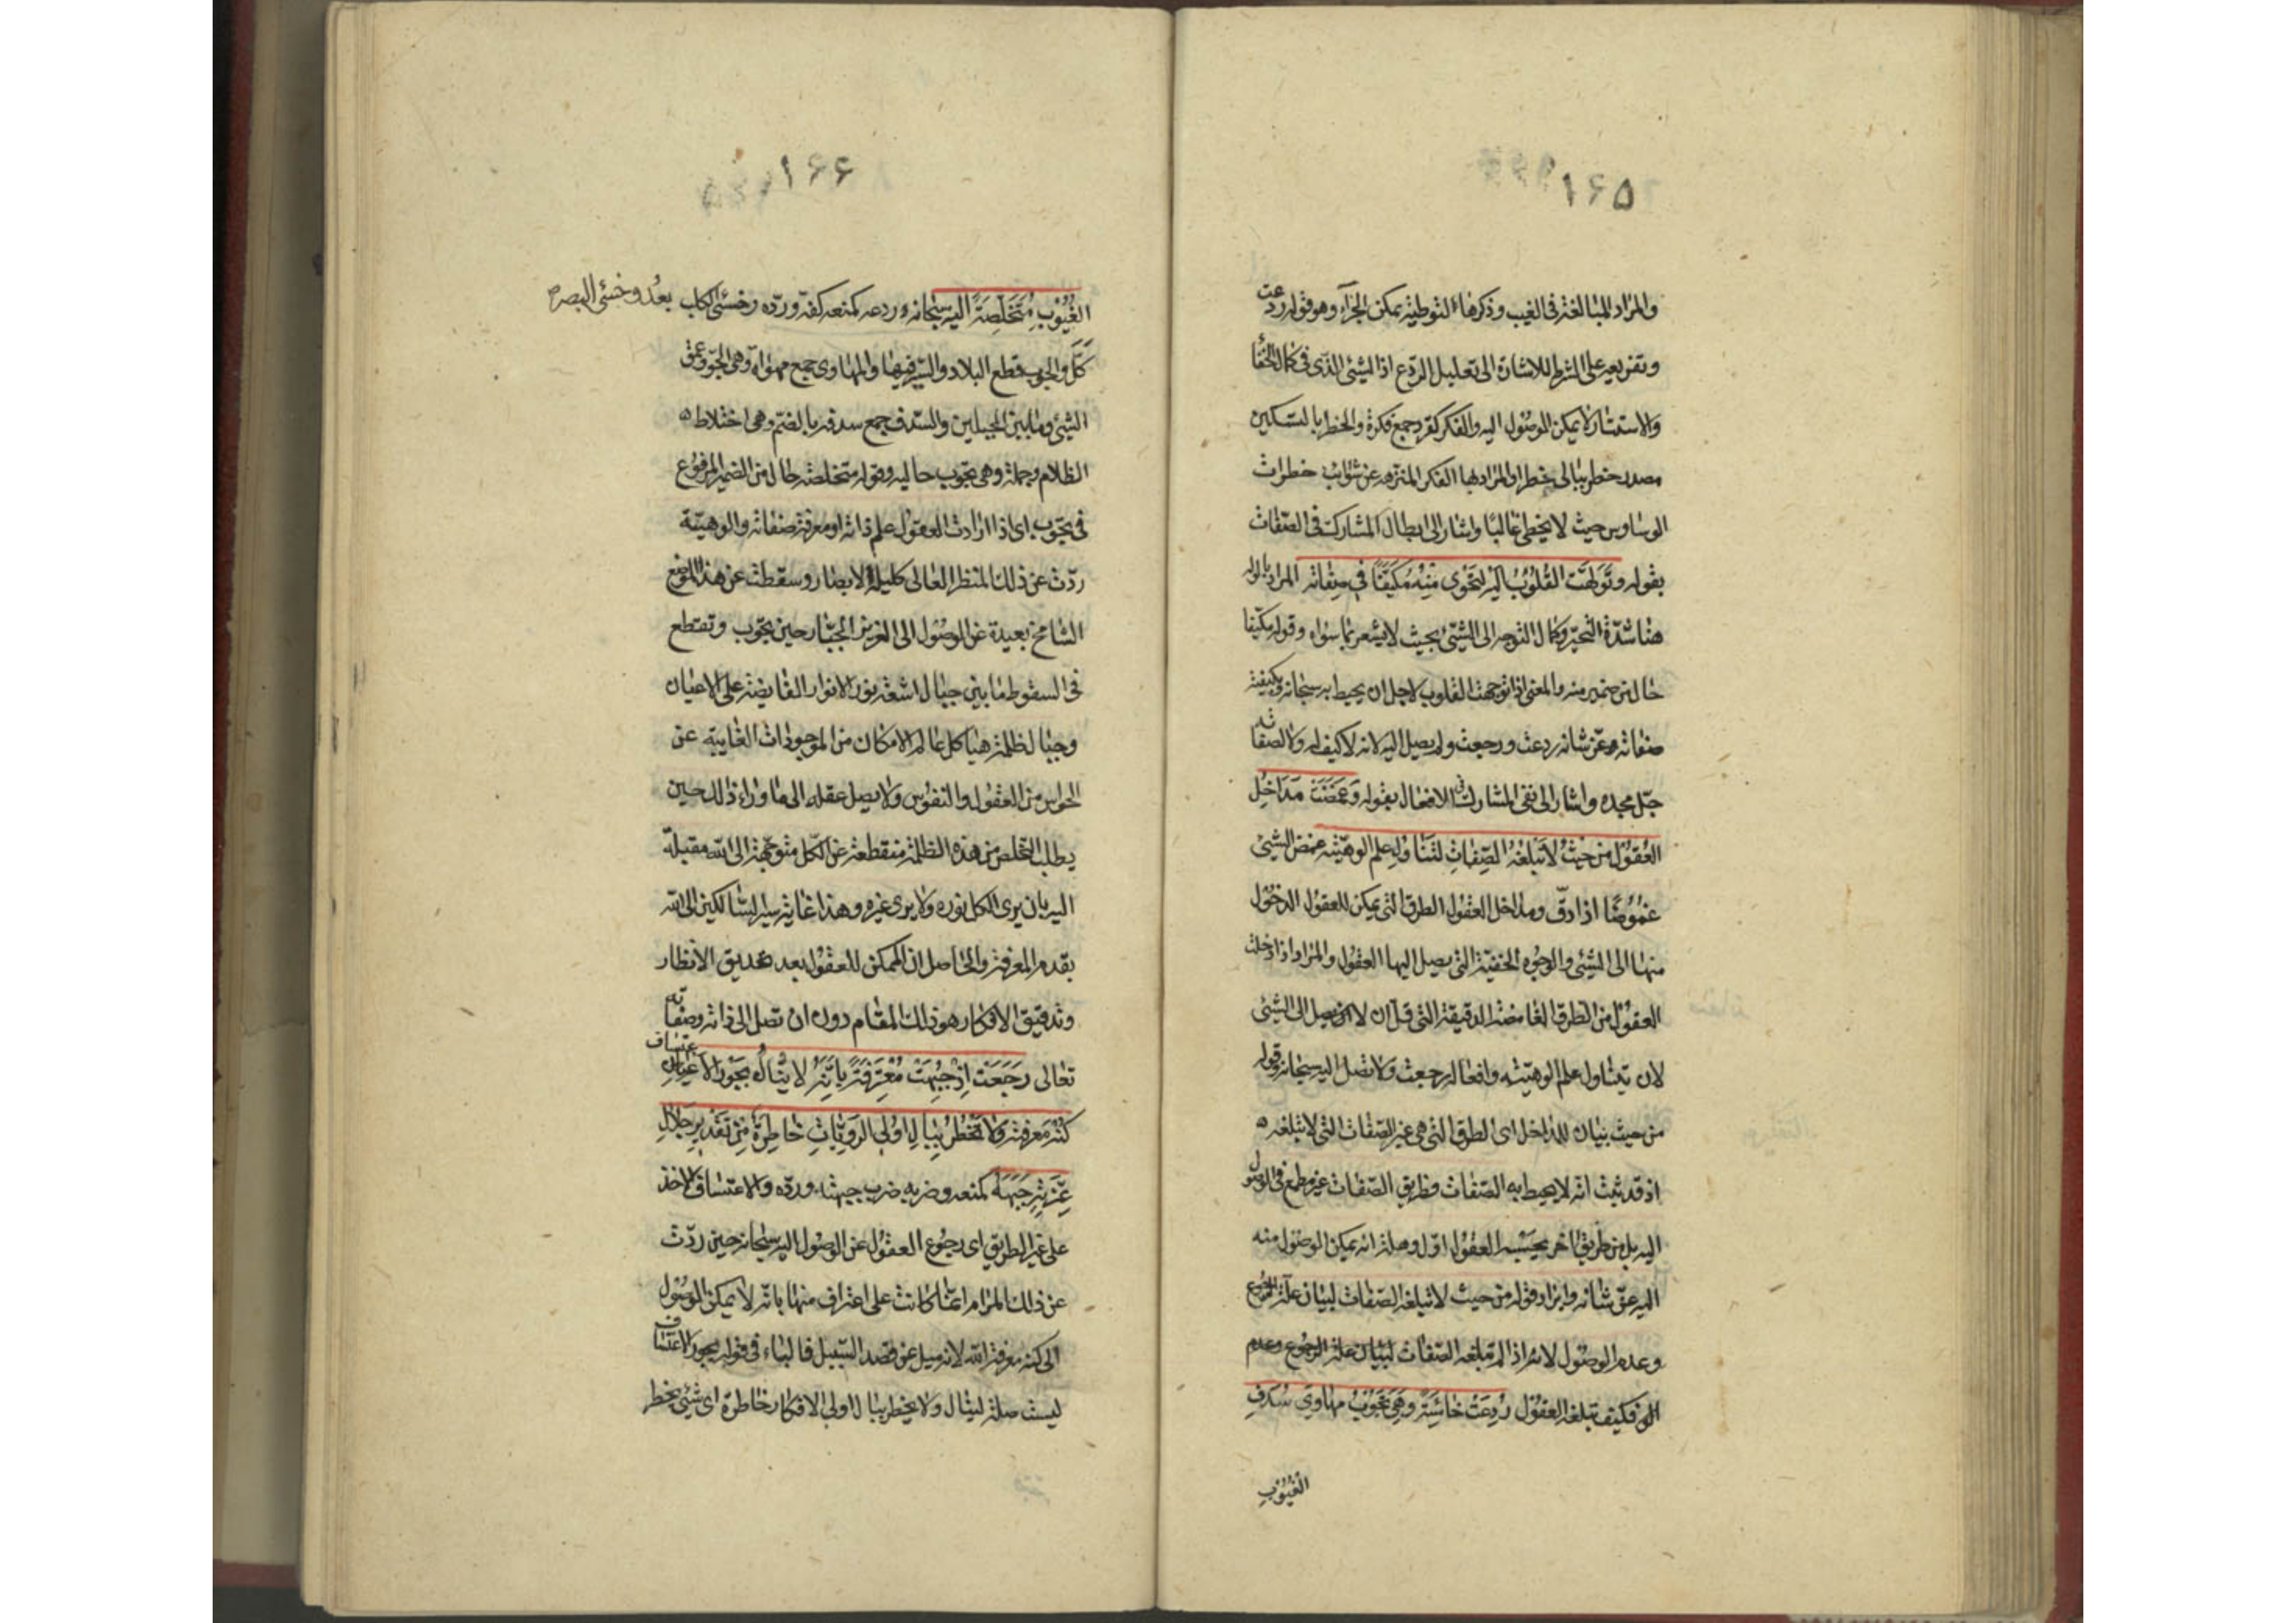 ۱۶۵
والمراد المبالغة فی الغیب وذکرها لتوطیة یمکن الجزآء وهو قوله ردعت
وتفریعه علی الشرط للاشارة الی تعلیل الردع اذ الشیئ الذی فی کمال الخفأ
والاستتار لا یمکن الوصول الیه والفکر کقرد جمع فکرة والخطر بالتسکین
مصدر خطر ببالی خطرا والمراد بها الفکر المنزهه عن شوایب خطرات
الوساوس حیث لا یخطی غالبًا واشار الی ابطال المشارکة فی الصّفات
بقوله وتَوَلَّهَت القُلوُبُ اِلَیْهِ لِتَحْوِی مِنْهُ مُکَیَّفًا فی صِفاتِه المراد بالوله
هنا شدّة التحیّر وکمال التوجه الی الشیئ بحیث لا یشعر بما سواه وقوله مکیّفا
حال من ضمیر منه والمعنی اذا توجهت القلوب لاجل ان یحیط به سبحانه وبکیفیة
صفاته عزّ شانه ردعت ورجعت ولم یصل الیه لانه لا کیف له ولا لصفاته
جلّ مجده واشار الی نفی المشارکة فی الافعال بقوله وَغَمَضَتْ مَدَاخِلُ
العُقوُلِ مِن حَیْثُ لا تَبْلُغُهُ الصِّفاتُ لِتَنَاوُلِ عِلمِ الوهیّته غمض الشیئ
غُمُوُضًا اذا دقّ ومداخل العقول الطرق التی یمکن للعقول الدخول
منها الی الشیئ والوجوه الخفیّة التی یصل الیها العقول والمراد اذا دخلت
العقول من الطرق الغامضة الدقیقة التی قلّ ان لا یصل الی الشیئ
لان یتناول علم الوهیّته وافعاله رجعت ولا تصل الیه سبحانه وقوله
من حیث بیان للمداخل ای الطرق التی هی غیر الصّفات التی لا تبلغه
اذ قد ثبت انّه لا یحیط به الصّفات وطریق الصّفات غیر مطمع فی الوصول
الیه بل من طریق اخر یحسبه العقول اوّل وهلة انه یمکن الوصول منه
الیه عزّ شانه وایراد قوله من حیث لا تبلغه الصّفات لبیان علّة الرجوع
وعدم الوصول لانه اذا لم تبلغه الصّفات لبیان علة الرجوع وعدم
الو فکیف تبلغه العقول رُدِعَتْ خَاسِئَةً وهِیَ تَجوُبُ مَهاوِیَ سُدَفِ
الغُیوُبِ
۱۶۶
الغُیُوبِ مُتَخَلِّصَةً الیه سبحانه وردعه کمنعه کفّه وردّه وخسئ الکلب بعُد وخسئ البصر
کَلَّ والجوب قطع البلاد والسّیر فیها والمهاوی جمع مهواة وهی الجوّ وعمق
الشیئ وما بین الجبلین والسّدف جمع سدفه بالضّم وهی اختلاط
الظلام وجملة وهی تجوب حالیه وقوله متخلصة حال من الضمیر المرفوع
فی تجوب ای اذا ارادت العقول علم ذاته او معرفة صفاته والوهیّته
ردّت عن ذلک المنظر العالی کلیلة الابصار وسقطت عن هذا الموضع
الشامخ بعیدة عن الوصول الی العزیز الجبّار حین تجوب وتقتطع
فی السقوط ما بین جبال اشعة نور الانوار الفایضة علی الاعیان
وجبال ظلمة هیاکل عالم الامکان من الموجودات الغایبة عن
الحواس من العقول والنفوس ولا یصل عقله الی ما وراء ذلک حین
یطلب التخلص من هذه الظلمة منقطعة عن الکلّ متوجّهة الی الله مقبلة
الیه بان یری الکل نوره ولا یری غیره وهذا غایة سیر السّالکین الی الله
بقدم المعرفة والحاصل ان الممکن للعقول بعد تحدیق الانظار
وتدقیق الافکار هو ذلک المقام دون ان تصل الی ذاته وصفاته
تعالی رَجَعَتْ اِذْ جُبِهَتْ مُعْتَرِفَةً بِاَنَّهُ لا یُنَالُ بِجَوْرِ الاِعْتِسافِ
کُنْهُ مَعْرِفَتِهِ وَلا تَخْطُرُ بِبَالِ اولِی الرَوِیَّاتِ خَاطِرَةٌ مِنْ تَقْدیرِ جَلالِ
عِزَّتِهِ جَبَهَهُ کمنعه وضربه ضرب جبهته وردّه والاعتساف الاخذ
علی غیر الطریق ای رجوع العقول عن الوصول الیه سبحانه حین ردّت
عن ذلک المرام انّما کانت علی اعتراف منها بانّه لا یمکن الوصول
الی کنه معرفة الله لانه میل عن قصد السّبیل فالباء فی قوله بجور الاعتساف
لیست صلة لینال ولا یخطر ببال اولی الافکار خاطرة ای شیئ یخطر